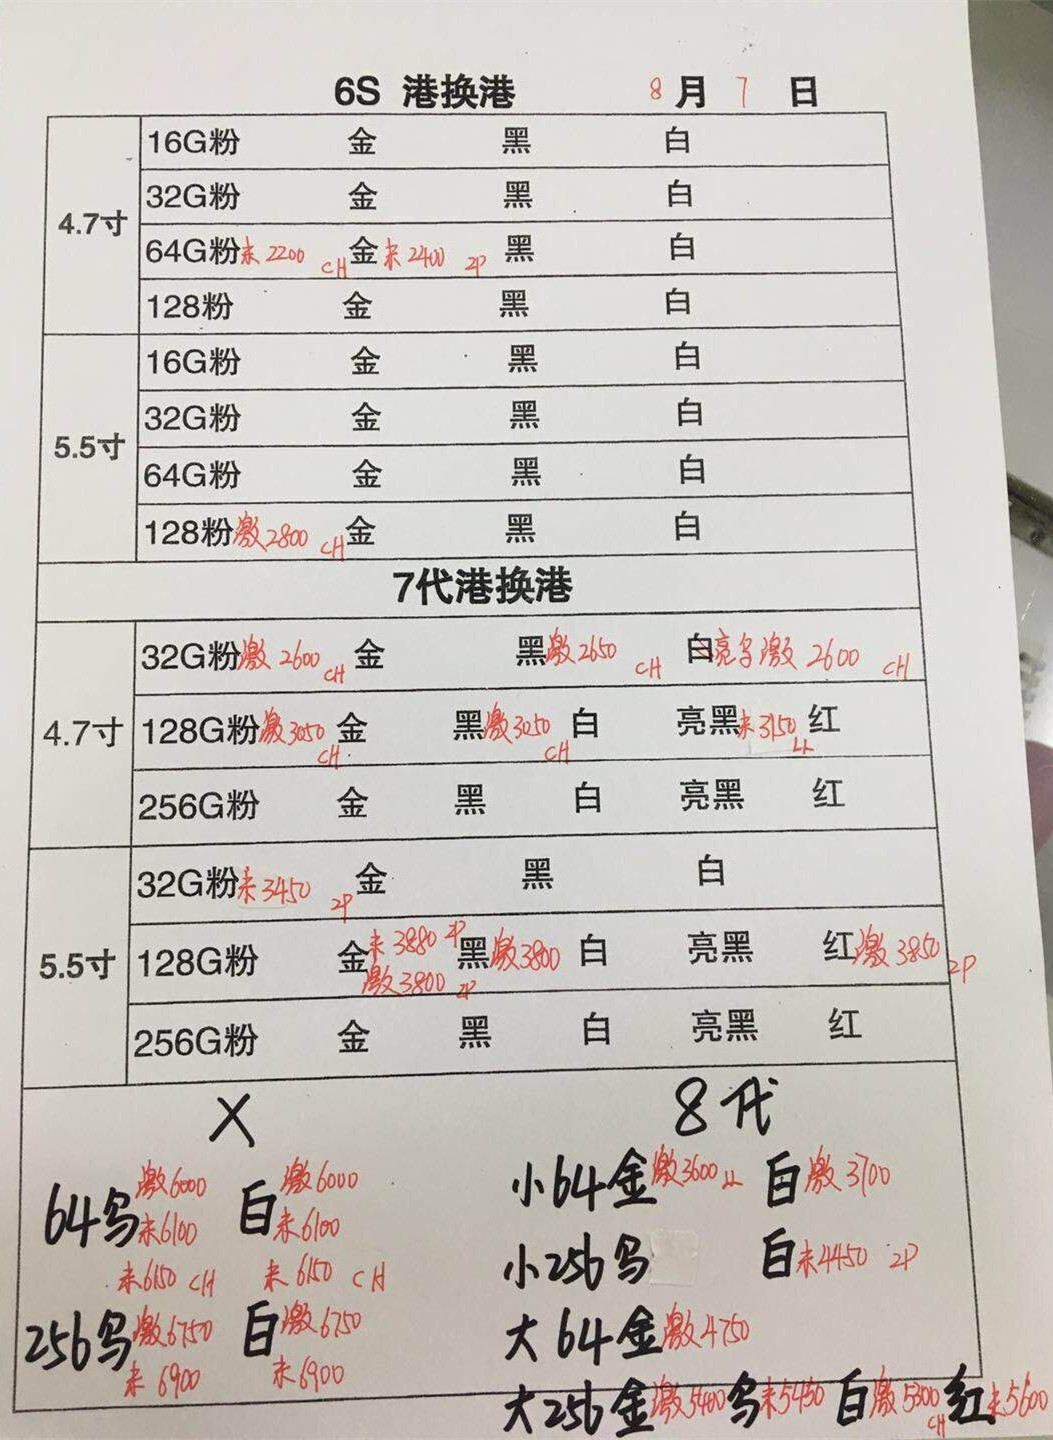 6S 港换港 8月7日
4.7寸
16G粉 金 黑 白
32G粉 金 黑 白
64G粉未2200 CH 金未2400 2P 黑 白
128粉 金 黑 白
5.5寸
16G粉 金 黑 白
32G粉 金 黑 白
64G粉 金 黑 白
128粉激2800 CH 金 黑 白
7代港换港
4.7寸
32G粉激2600 CH 金 黑激2650 CH 白亮黑激2600 CH
128G粉激3050 CH 金 黑激3050 CH 白 亮黑未3150 LL 红
256G粉 金 黑 白 亮黑 红
5.5寸
32G粉未3450 2P 金 黑 白
128G粉 金未3880 2P 激3800 2P 黑激3800 白 亮黑 红激3850 2P
256G粉 金 黑 白 亮黑 红
X
64乌激6000 白激6000
未6100 未6100
未6150 CH 未6150 CH
256乌激6750 白激6750
未6900 未6900
8代
小64金激3600 LL 白激3700
小256乌 白未4450 2P
大64金激4750
大256金激5400 乌未5450 白激5300 CH 红未5600